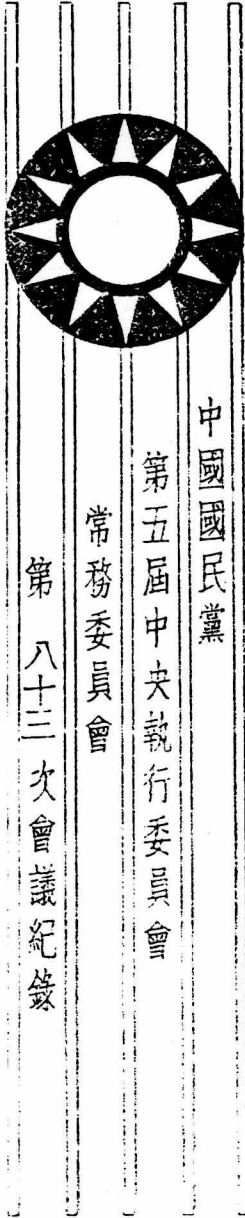 中國國民黨
第五屆中央執行委員會
常務委員會
第 八十三 次會議紀錄